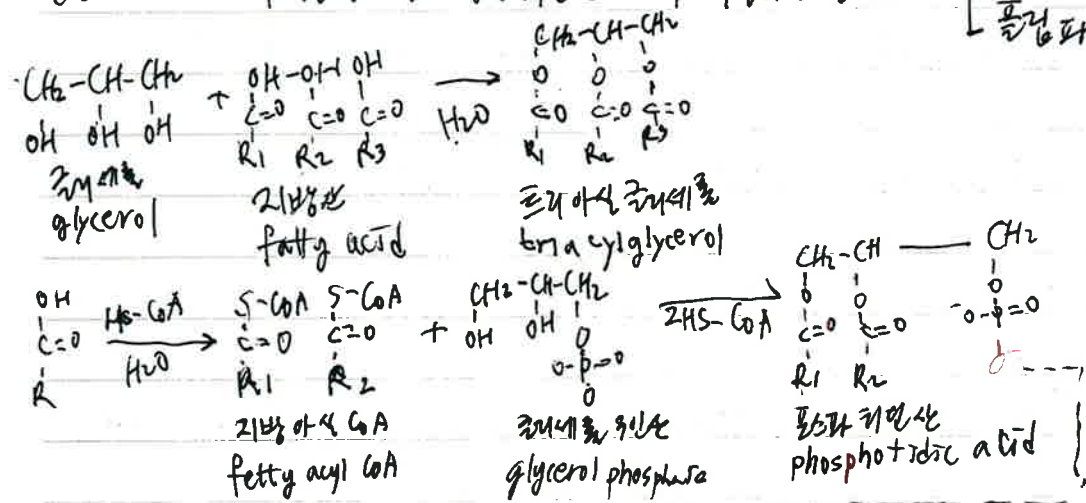 CH2-CH-CH2
OH OH OH
글리세롤
glycerol
+
OH-OH OH
C=O C=O C=O
R1 R2 R3
지방산
fatty acid
H2O
CH2-CH-CH2
O O O
C=O C=O C=O
R1 R2 R3
트리아실글리세롤
triacylglycerol
OH
C=O
R
HS-CoA
H2O
S-CoA S-CoA
C=O C=O
R1 R2
지방아실 CoA
fetty acyl CoA
+
CH2-CH-CH2
OH OH O
O-P=O
O
글리세롤 3인산
glycerol phosphate
2HS-CoA
CH2-CH — CH2
O O O
C=O C=O -O-P=O
R1 R2 O-
포스파티딘산
phosphotidic acid